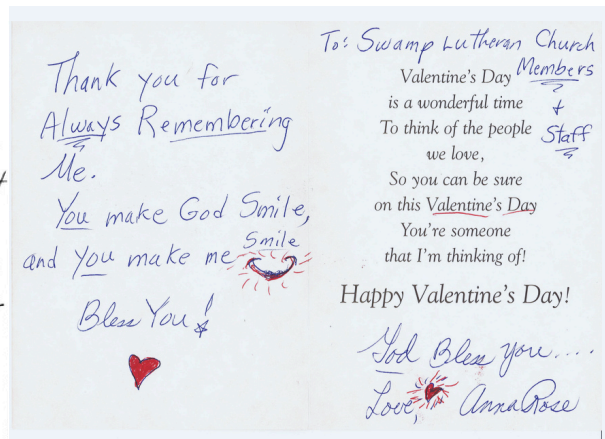 Thank you for
Always Remembering
Me.
You make God Smile,
and you make me Smile
Bless You!
To: Swamp Lutheran Church
Members
+
Staff
Valentine's Day
is a wonderful time
To think of the people
we love,
So you can be sure
on this Valentine's Day
You're someone
that I'm thinking of!
Happy Valentine's Day!
God Bless you....
Love, Anna Rose